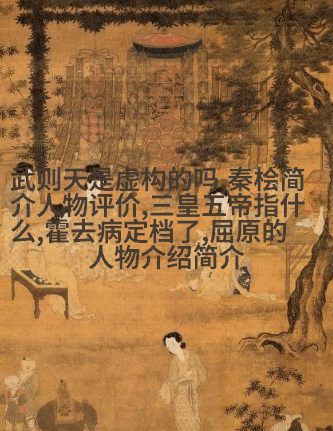 武则天是虚构的吗,秦桧简
介人物评价,三皇五帝指什
么,霍去病定档了,屈原的
人物介绍简介